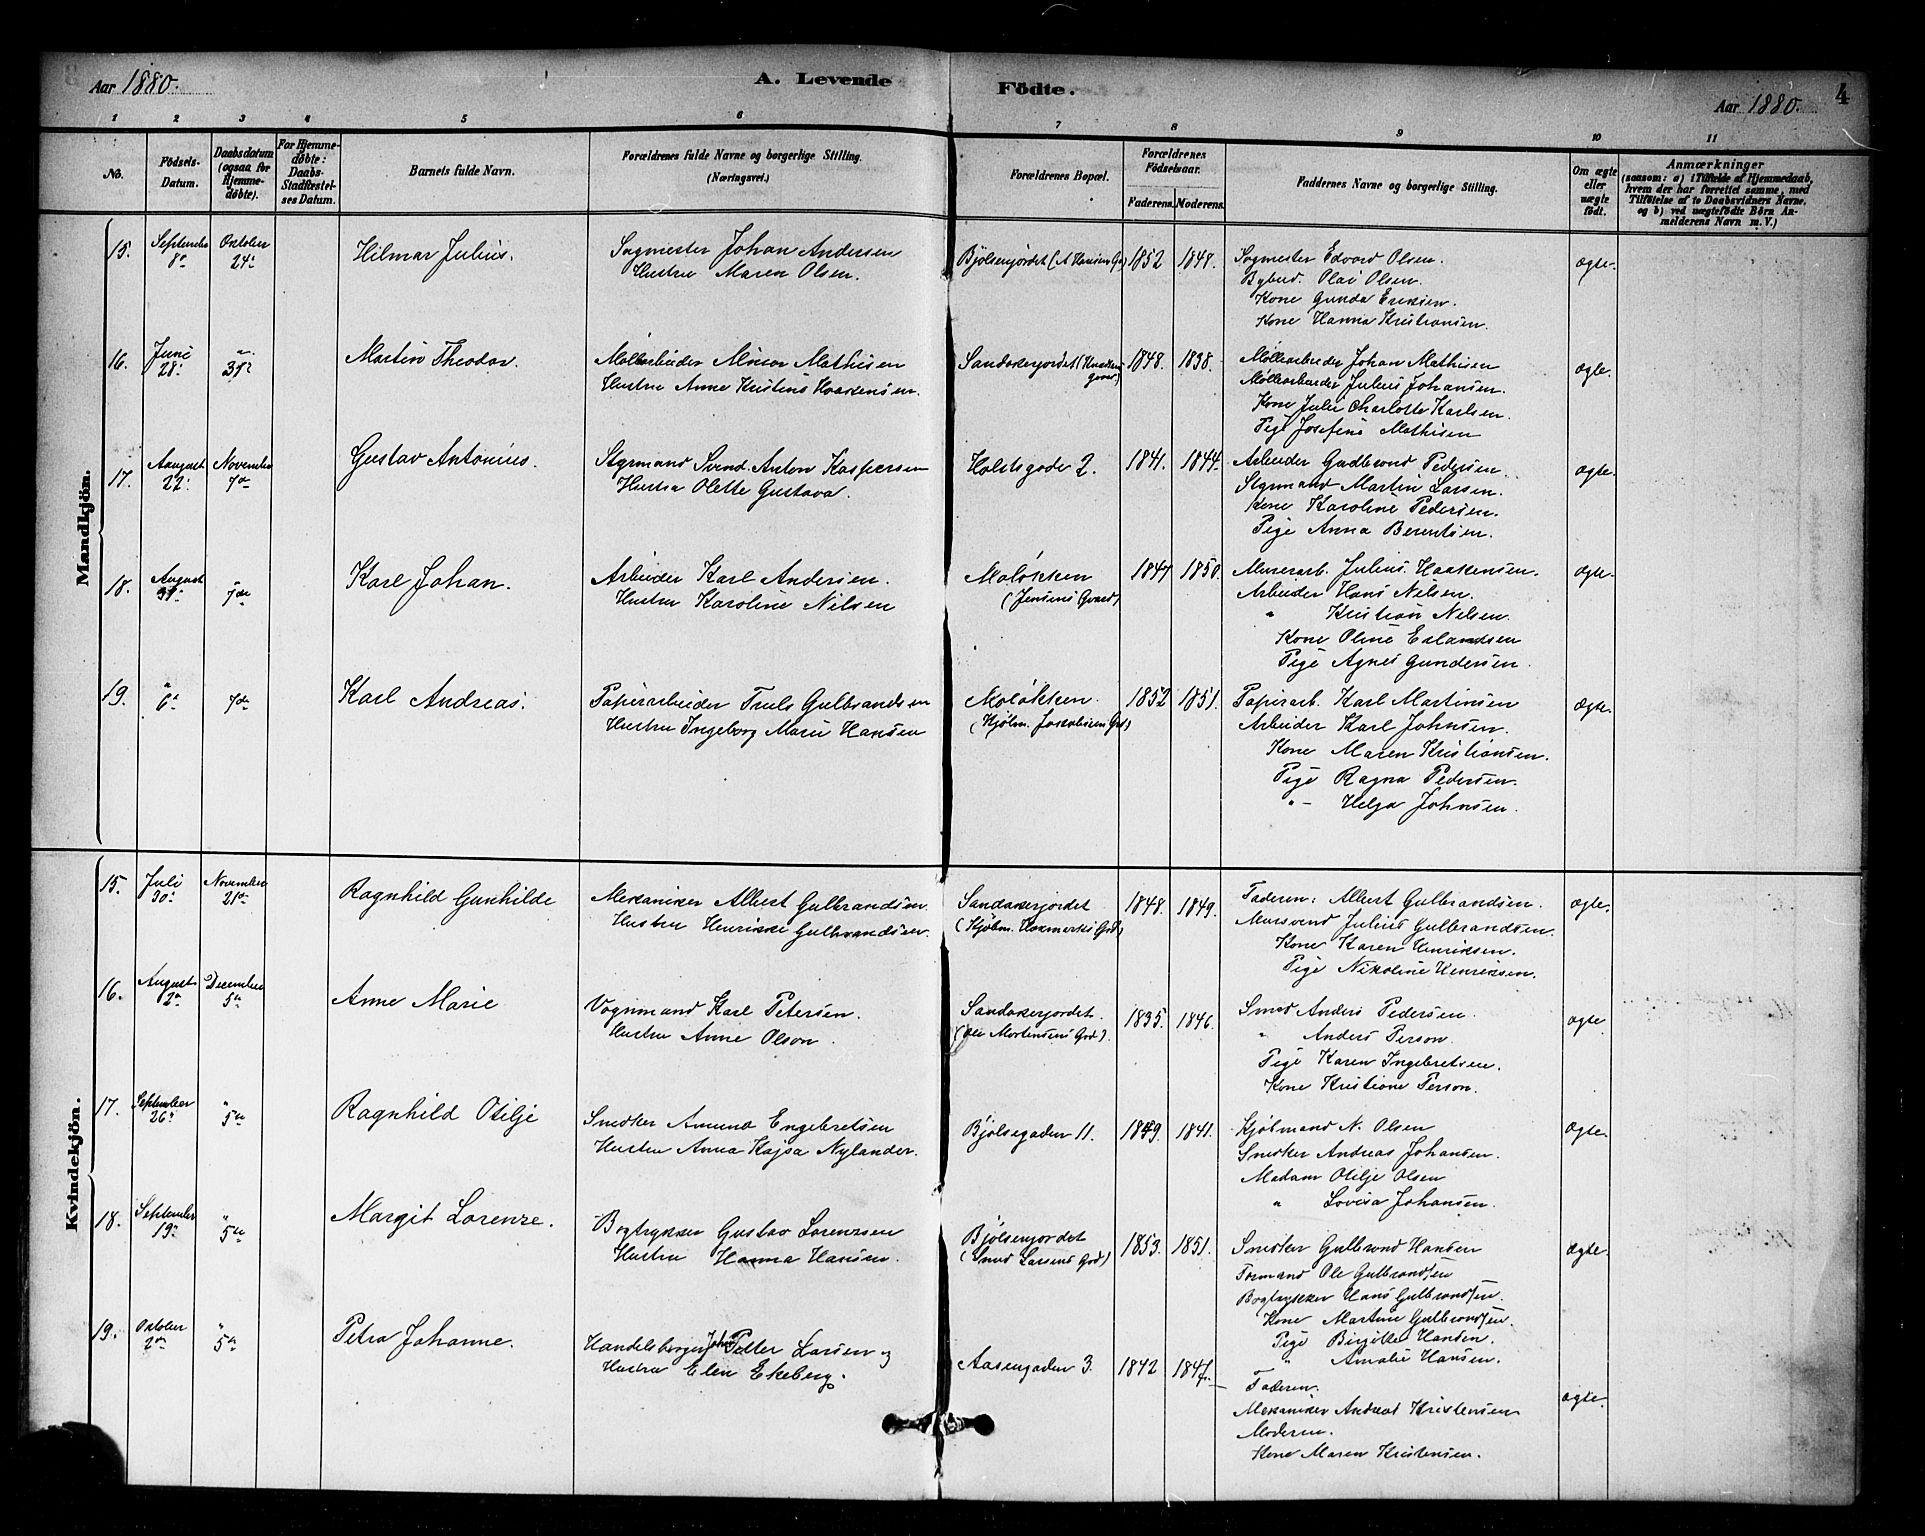 Aar 1880.
A. Levende Födte.
Aar 1880.
4
1 2 3 4 5 6 7 8 9 10 11
No.
Födsels-Datum.
Daabsdatum (ogsaa for Hjemme-døbte).
For Hjemme-døbte: Daabs-Stadfæstel-ses Datum.
Barnets fulde Navn.
Forældrenes fulde Navne og borgerlige Stilling. (Næringsvei.)
Forældrenes Bopæl.
Forældrenes Födselsaar.
Faderens. Moderens.
Faddernes Navne og borgerlige Stilling.
Om ægte eller uægte födt.
Anmærkninger (saasom: a) i Tilfælde af Hjemmedaab, hvem der har forrettet samme, med Tilföielse af to Daabsvidners Navne. og b) ved uægtefödte Börn An-melderens Navn m. V.)
Mandkjön.
15. September 8de Oktober 24de Hilmar Julius. Sagmester Johan Andersen Bjølsenjordet (A Hansens Gd) 1852 1848. Sagmester Edvard Olsen. Ægte.
Hustru Maren Olsen. Bybud. Olai Olsen.
Kone Gunda Eriksen.
Kone Hanna Kristiansen.
16. Juni 28. " 31te Martin Theodor. Møllearbeider Mathisen Sandakerjordet 1848. 1838. Møllearbeider Johan Mathisen ægte.
Hustru Anne Kristine Haakensen. Møllearbeider Julius Johansen.
Kone Julie Charlotte Karlsen.
Pige Josefine Mathisen
17. August 22. November 7de Gustav Antonius. Styrmand Svend Anton Kaspersen Holstsgade 2. 1841. 1844. Arbeider Gudbrand Pedersen ægte.
Hustru Olette Gustava. Styrmand Martin Larsen.
Kone Karoline Pedersen.
Pige Anna Berentsen.
18. August 7de Karl Johan. Arbeider Karl Andersen. Moløkken 1844 1850. Murerarb. Julius Haakensen. ægte.
Hustru Karoline Nilsen (Jensens Gaard) Arbeider Hans Nilsen.
" Kristian Nelsen.
Kone Oline Erlandsen
Pige Agnes Gundersen.
19. " 6te 7de Karl Andreas. Papirarbeider Truls Gulbrandsen Moløkken. 1852 1851. Papirarb. Karl Martinsen Ægte.
Hustru Ingeborg Marie Hansen (Kjøbm. Jakobsens Gd) Arbeider Karl Johnsen.
Kone Maren Kristiansen.
Pige Ragna Pedersen.
" Helga Johnsen.
Kvindekjön.
15. Juli 30. November 21de Ragnhild Gunhilde Mekaniker Albert Gulbrandsen. Sandakerjordet 1848. 1849. Faderen: Albert Gulbrandsen. ægte.
Hustru Henrikke Gulbrandsen. Mursvend Julius Gulbrandsen.
Kone Karen Henriksen.
Pige Nikoline Henriksen.
16. August 2de December 5te Anne Marie Vognmand Karl Petersen. Sandakerjordet. 1835. 1846. Smed Anders Pedersen. ægte
Hustru Anne Olson. (Ole Mortensens Gd). " Anders Person.
Pige Karen Ingebretsen.
Kone Kristiane Person.
17. September 26de " 5te Ragnhild Otilje Snedker Amund Engebretsen Bjølsegaden 11. 1849. 1841. Kjøbmand N. Olsen Ægte.
Hustru Anna Kajsa Nylander. Snedker Andreas Johansen.
Madam Otilje Olsen
" Lovisa Johansen.
18. September 19de " 5te Margit Lorenze. Bogtrykker Gustav Lorentzen Bjølsenjordet 1853. 1851. Snedker Gulbrand Hansen Ægte.
Hustru Hanna Hansen. (Smed Larsens Gd) Formand Ole Gulbrandsen
Bogtrykker Hans Gulbrandsen.
Kone Martine Gulbrandsen.
Pige Birgitte Hansen.
" Amalie Hansen.
19. Oktober 2den " 5te Petra Johanne. Handelsborger Johan Petter Larsen og Aasengaden 3. 1842 Faderen. ægte.
Hustru Elen Ekeberg. Mekaniker Andreas Kristensen
Moderen.
Kone Maren Kristensen.